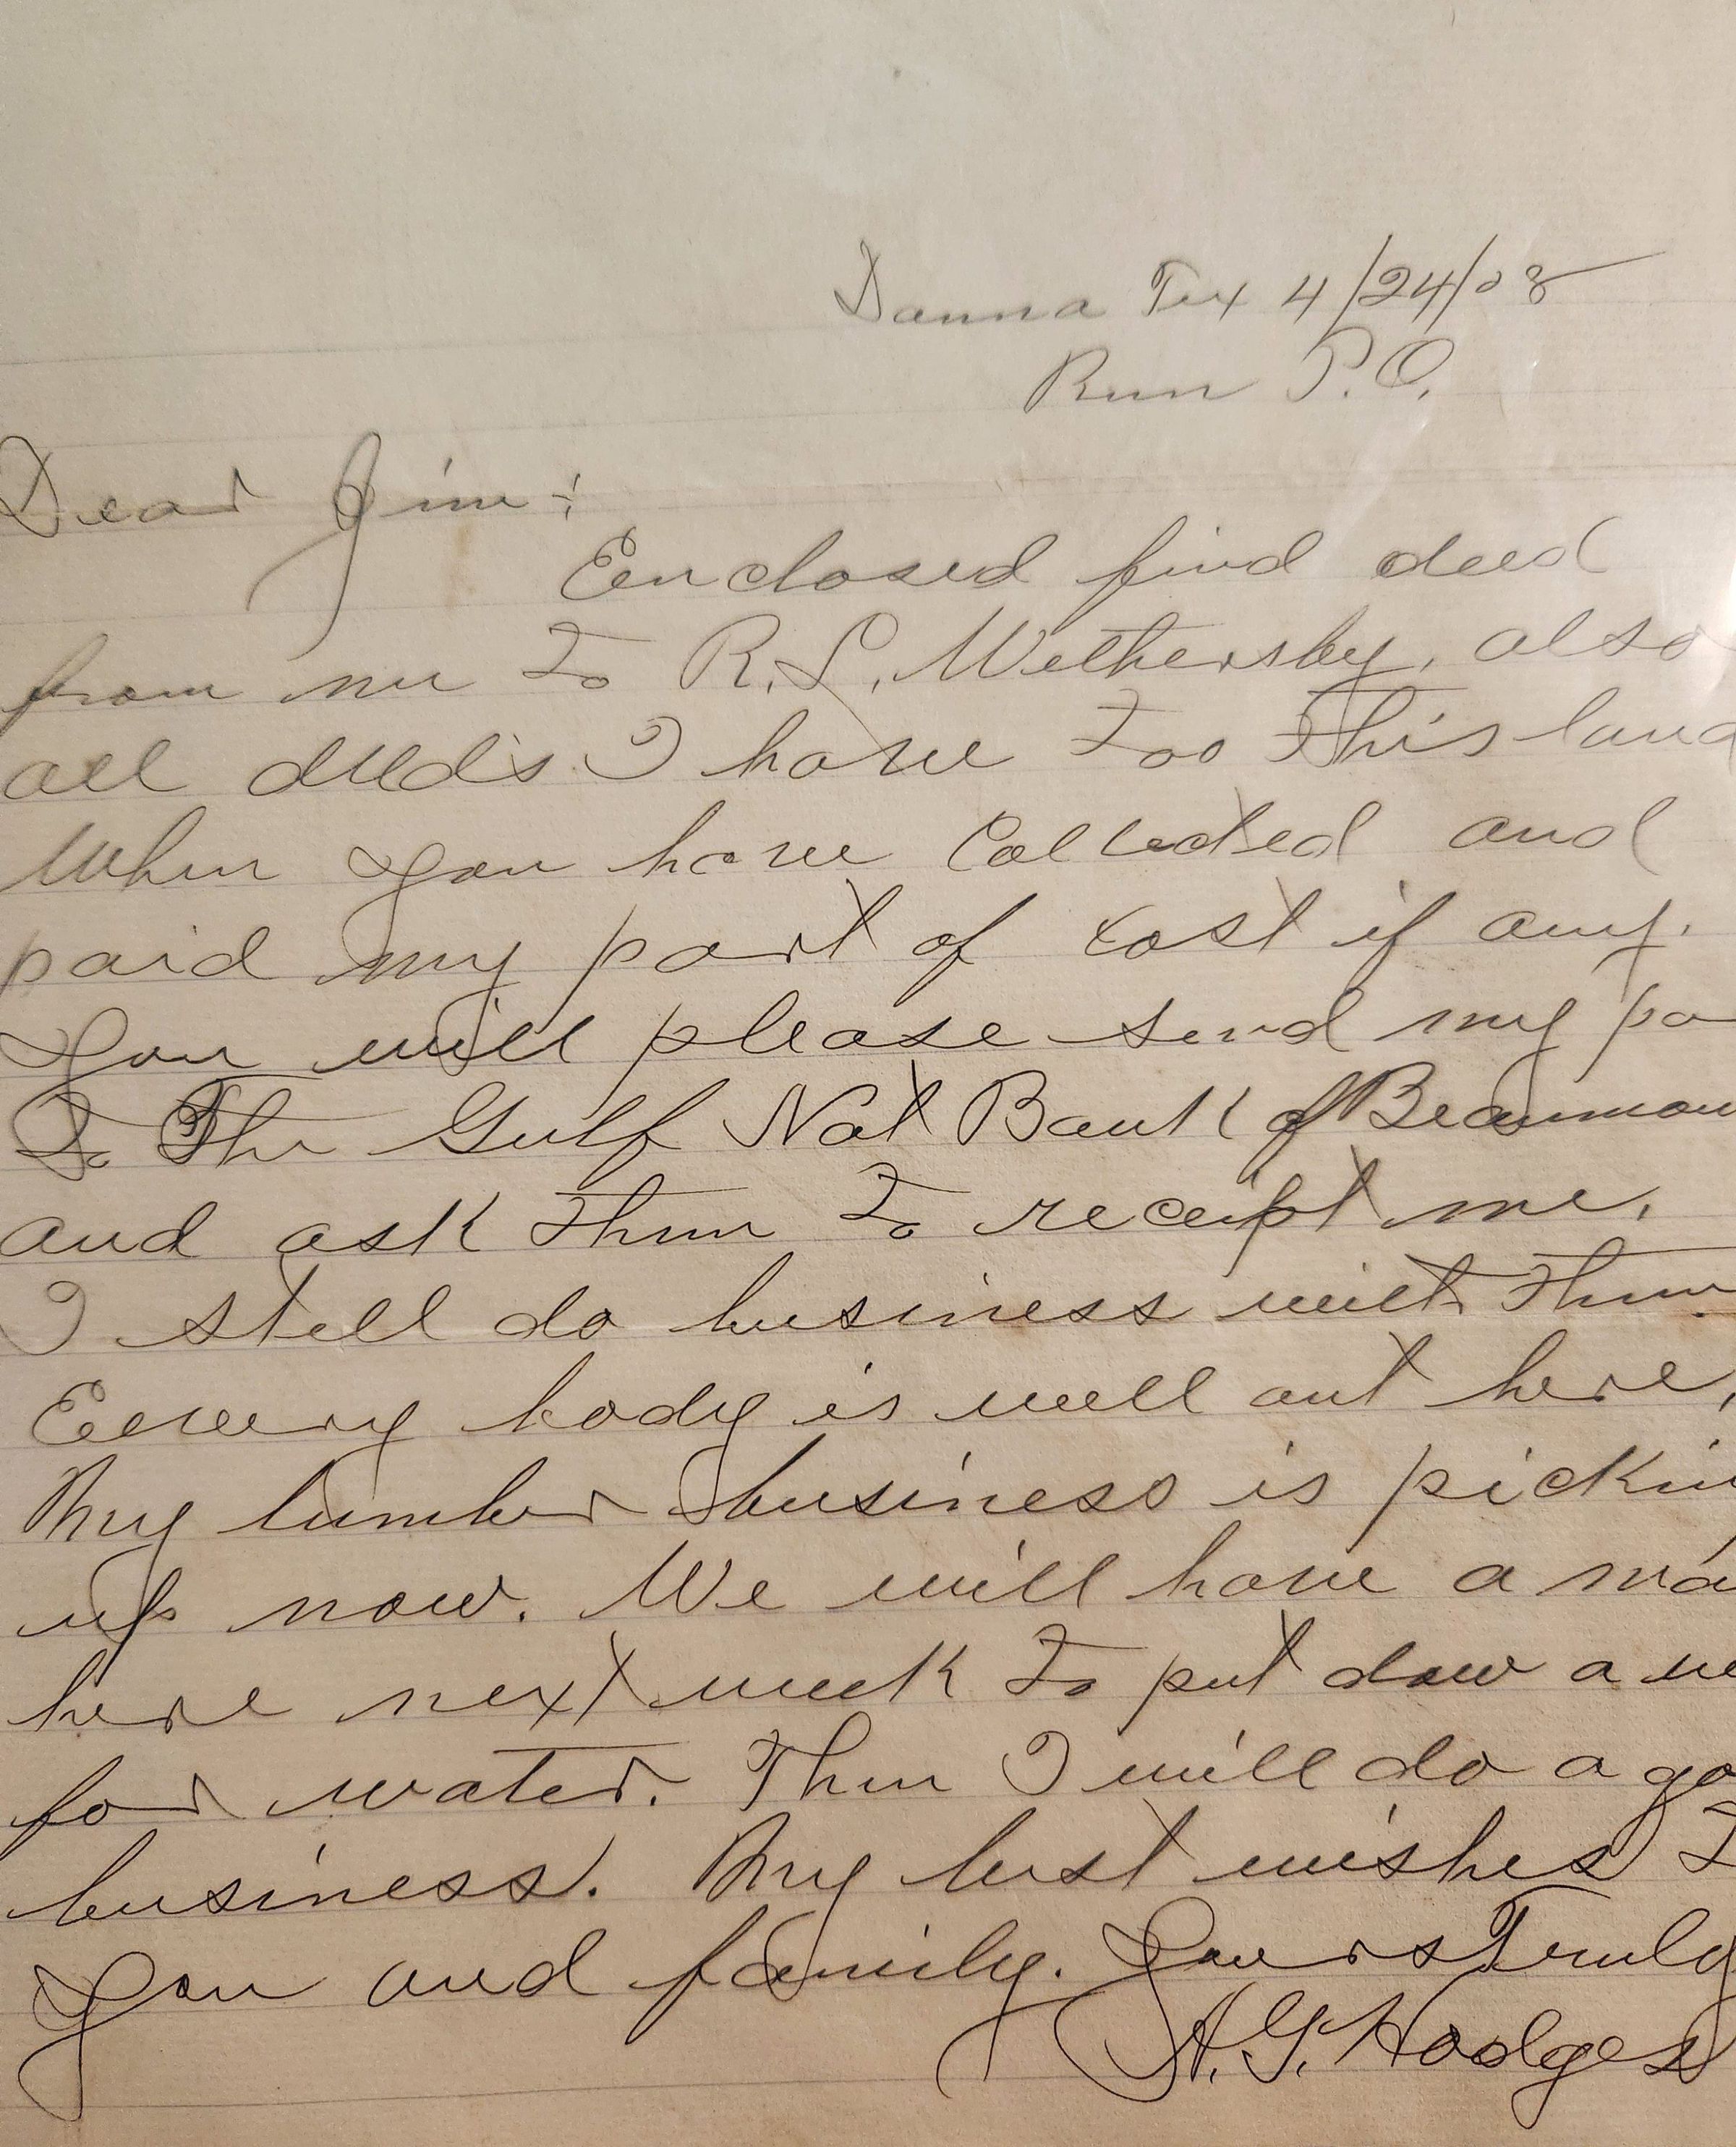 Danna Tex 4/24/08
Run P.O.
Dear Jim:
Enclosed find deed
from me to R.L. Wethersby, also
all deeds I have too this land
When you have Collected and
paid my part of cost if any.
You will please send my pa
To The Gulf Nat Bank of Beaumon
and ask them to receipt me.
I still do business with them
Every body is well out here,
My lumber business is pickin
up now. We will have a ma
here next week to put dow a we
for water. Then I will do a goo
business. My best wishes to
you and family. Yours Truly
A.G. Hodges